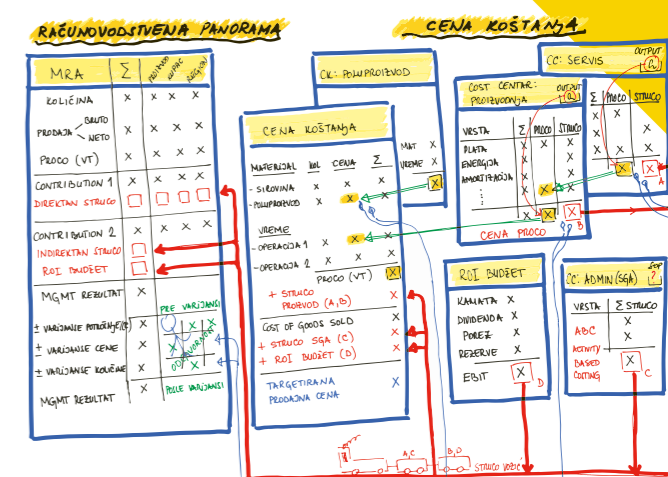 RAČUNOVODSTVENA PANORAMA
MRA Σ PROIZVOD KUPAC REGION
KOLIČINA X X X X
PRODAJA BRUTO X X X X
NETO X X X X
PROCO (VT) X X X X
CONTRIBUTION 1 X X X X
DIREKTAN STRUCO
CONTRIBUTION 2 X X X X
INDIREKTAN STRUCO
ROI BUDŽET
MGMT REZULTAT X
PRE VARIJANSI
± VARIJANSE POTROŠNJE X
± VARIJANSE CENE X
± VARIJANSE KOLIČINE X
ODGOVORNOST
MGMT REZULTAT X
POSLE VARIJANSI
CENA KOŠTANJA
CK: POLUPROIZVOD
MAT X
VREME X
X
CENA KOŠTANJA
MATERIJAL KOL CENA Σ
- SIROVINA X X X
- POLUPROIZVOD X X X
VREME
- OPERACIJA 1 X X X
- OPERACIJA 2 X X X
PROCO (VT) X
+ STRUCO PROIZVOD (A,B) X
COST OF GOODS SOLD X
+ STRUCO SGA (C) X
+ ROI BUDŽET (D) X
TARGETIRANA
PRODAJNA CENA X
COST CENTAR:
PROIZVODNJA
OUTPUT
Q
VRSTA Σ PROCO STRUCO
PLATA X X X
ENERGIJA X X
AMORTIZACIJA X X
X X X
X X X
B
CENA PROCO
CC: SERVIS
OUTPUT
Q
Σ PROCO STRUCO
X X
X X
X X
X X
ROI BUDŽET
KAMATA X
DIVIDENDA X
POREZ X
REZERVE X
EBIT X
D
CC: ADMIN (SGA)
?
VRSTA Σ STRUCO
ABC X
ACTIVITY X
BASED
COSTING X
C
A,C
B,D
STRUCO VOZIĆ